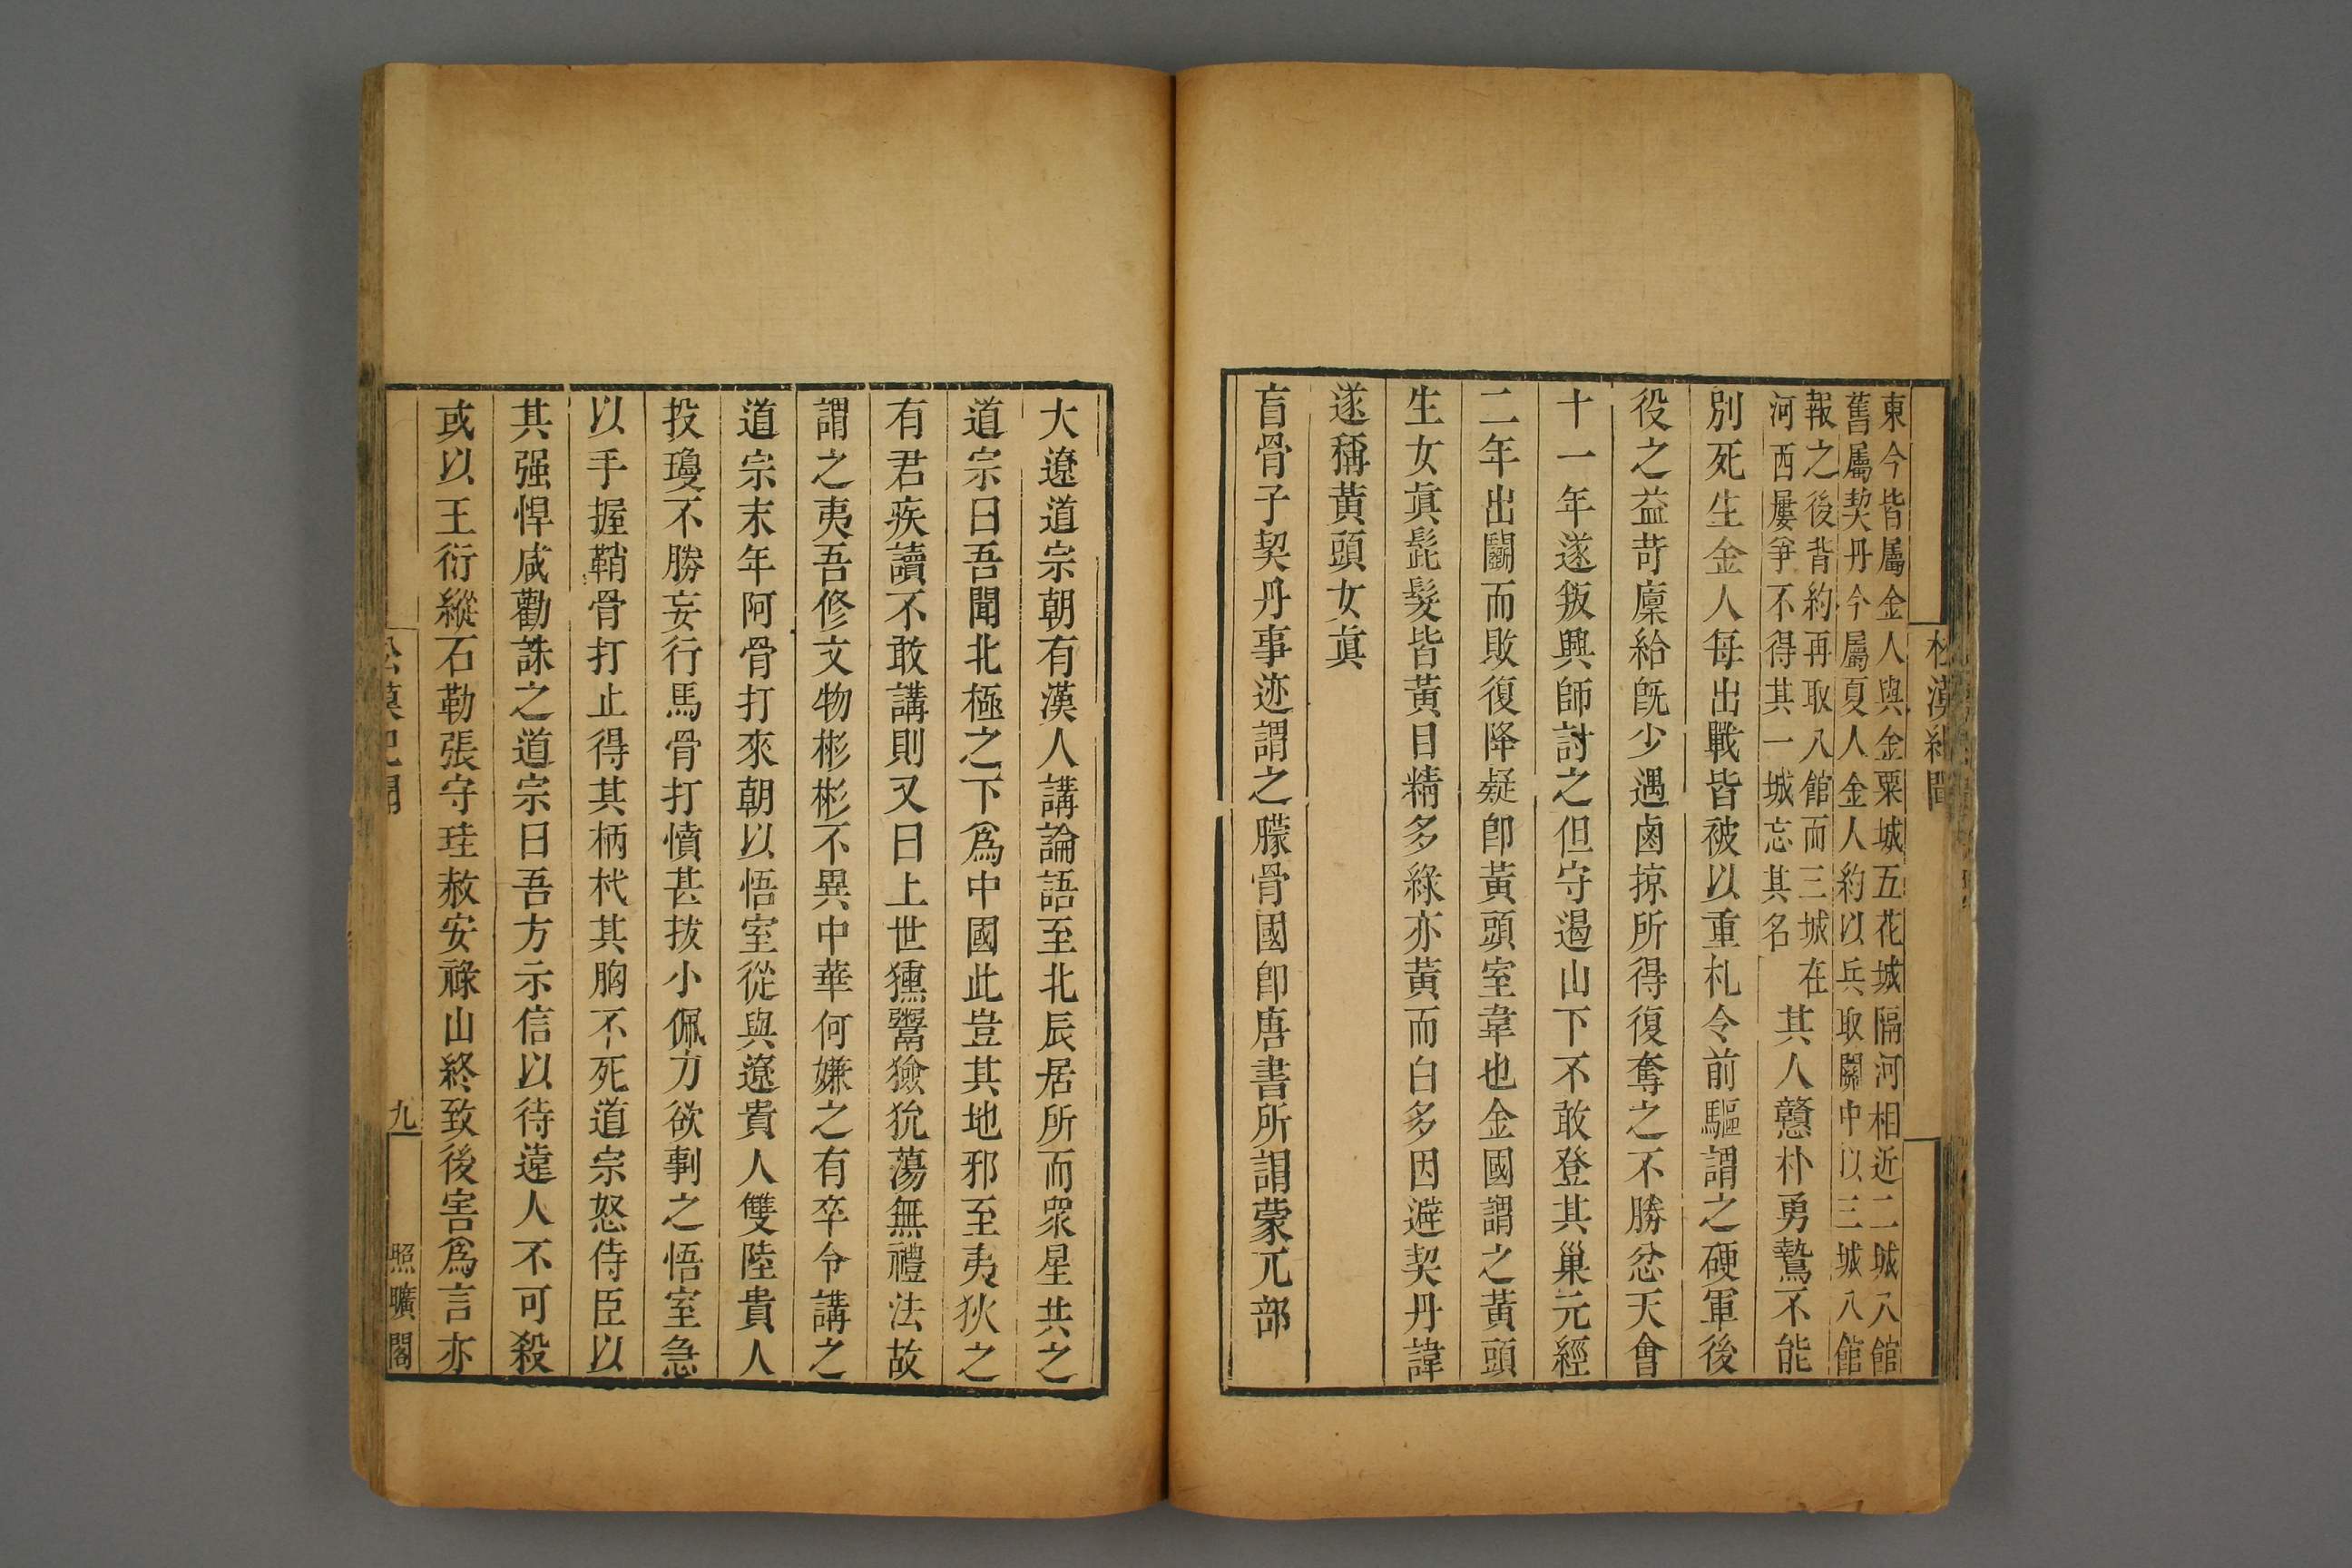 東今皆屬金人與金粟城五花城隔河相近二城八館
舊屬契丹今屬夏人金人約以兵取關中以三城八館
報之後背約再取八館而三城在
河西屢爭不得其一城忘其名
其人戇朴勇鷙不能
別死生金人每出戰皆被以重札令前驅謂之硬軍後
役之益苛廩給既少遇鹵掠所得復奪之不勝忿天會
十一年遂叛興師討之但守遏山下不敢登其巢元經
二年出鬭而敗復降疑卽黃頭室韋也金國謂之黃頭
生女眞髭髮皆黃目精多綠亦黃而白多因避契丹諱
遂稱黃頭女眞
盲骨子契丹事迹謂之朦骨國卽唐書所謂蒙兀部
大遼道宗朝有漢人講論語至北辰居所而衆星共之
道宗曰吾聞北極之下爲中國此豈其地邪至夷狄之
有君疾讀不敢講則又曰上世獯鬻獫狁蕩無禮法故
謂之夷吾修文物彬彬不異中華何嫌之有卒令講之
道宗末年阿骨打來朝以悟室從與遼貴人雙陸貴人
投瓊不勝妄行馬骨打憤甚拔小佩刀欲剚之悟室急
以手握鞘骨打止得其柄杙其胸不死道宗怒侍臣以
其强悍咸勸誅之道宗曰吾方示信以待遠人不可殺
或以王衍縱石勒張守珪赦安祿山終致後害爲言亦
九
照曠閣